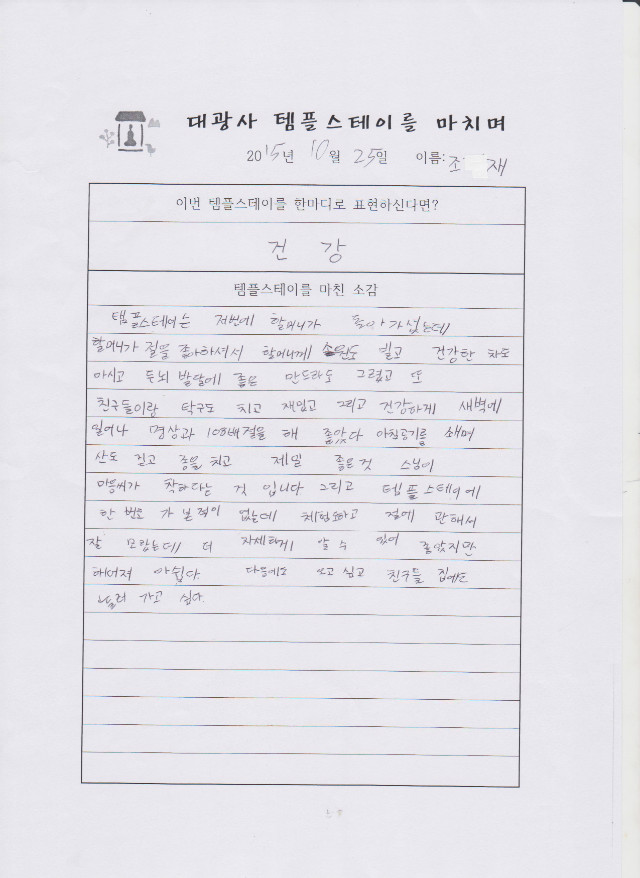 대광사 템플스테이를 마치며
2015년 10월 25일 이름: 조 재
이번 템플스테이를 한마디로 표현하신다면?
건 강
템플스테이를 마친 소감
템플스테이는 저번에 할머니가 돌아가셨는데
할머니가 절을 좋아하셔서 할머니께 소원도 빌고 건강한 차도
마시고 두뇌 발달에 좋은 만드라도 그렸고 또
친구들이랑 탁구도 치고 재밌고 그리고 건강하게 새벽에
일어나 명상과 108배 절을 해 좋았다 아침공기를 쐐며
산도 걷고 종을 치고 제일 좋은 것 스님이
마음씨가 착하다는 것 입니다 그리고 템플스테이에
한 번도 가 본 적이 없는데 체험도하고 절에 관해서
잘 모랐는데 더 자세하게 알 수 있어 좋았지만
헤어져 아쉽다. 다음에도 오고 싶고 친구들 집에도
놀러 가고 싶다.